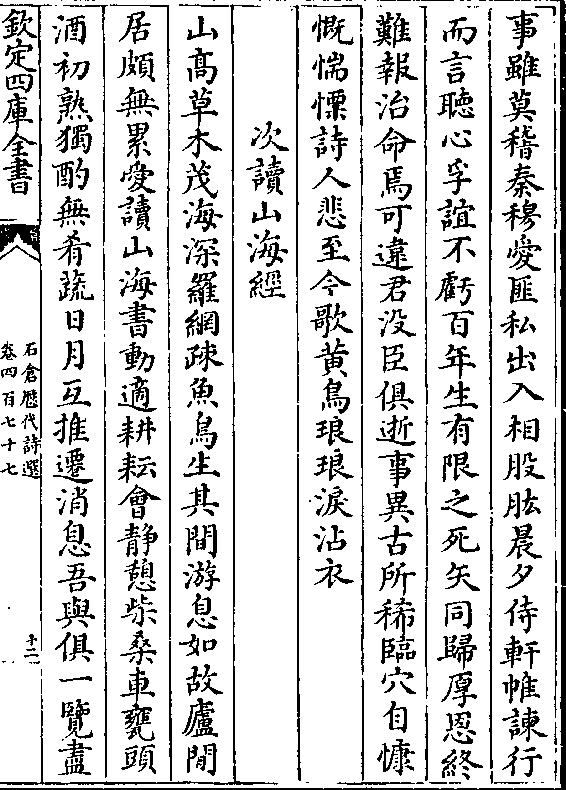 事雖莫稽秦穆愛匪私出入相股肱晨夕侍軒帷諫行
而言聽心孚誼不虧百年生有限之死矢同歸厚恩終
難報治命焉可違君没臣俱逝事異古所稀臨穴自慷
慨惴慄詩人悲至今歌黄鳥琅琅淚沾衣
次讀山海經
山高草木茂海深羅網疎魚鳥生其間游息如故廬閒
居頗無累愛讀山海書動適耕耘會静憩柴桑車甕頭
酒初熟獨酌無肴蔬日月互推遷消息吾與俱一覽盡
欽定四庫全書
石倉歷代詩選
卷四百七十七
十二